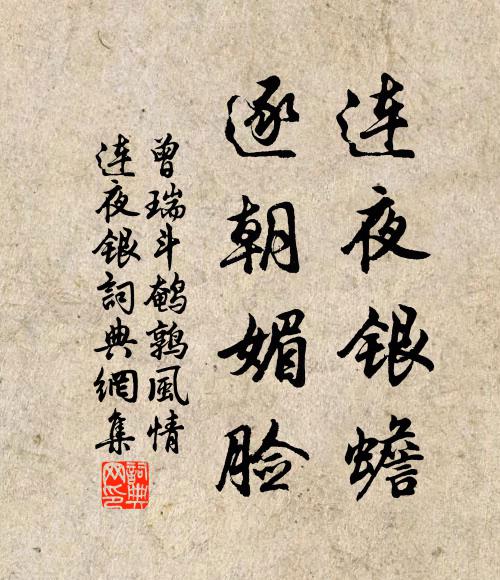 连夜银蟾
逐朝媚脸
曾瑞斗鹌鹑風情
连夜银詞典網集
詞典
网印